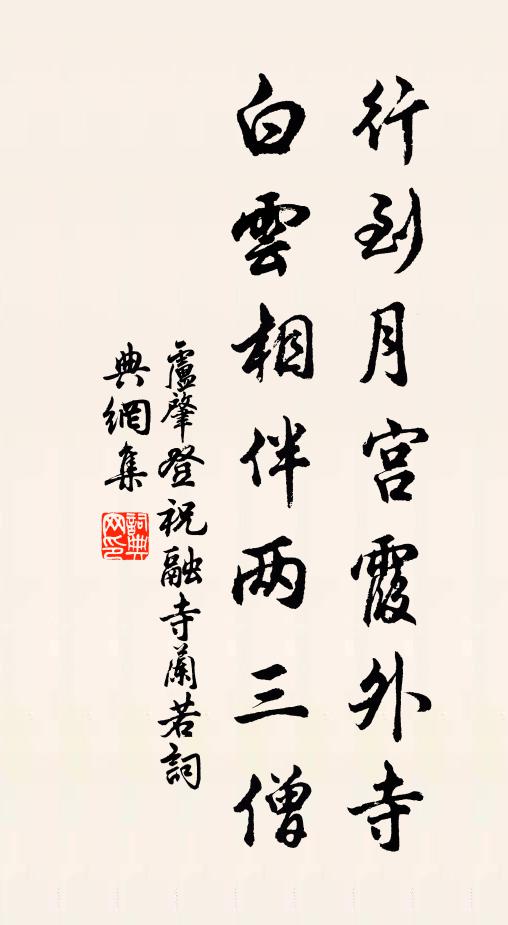 行到月宫霞外寺
白雲相伴两三僧
盧肇登祝融寺蘭若詞
典網集
詞典
网印